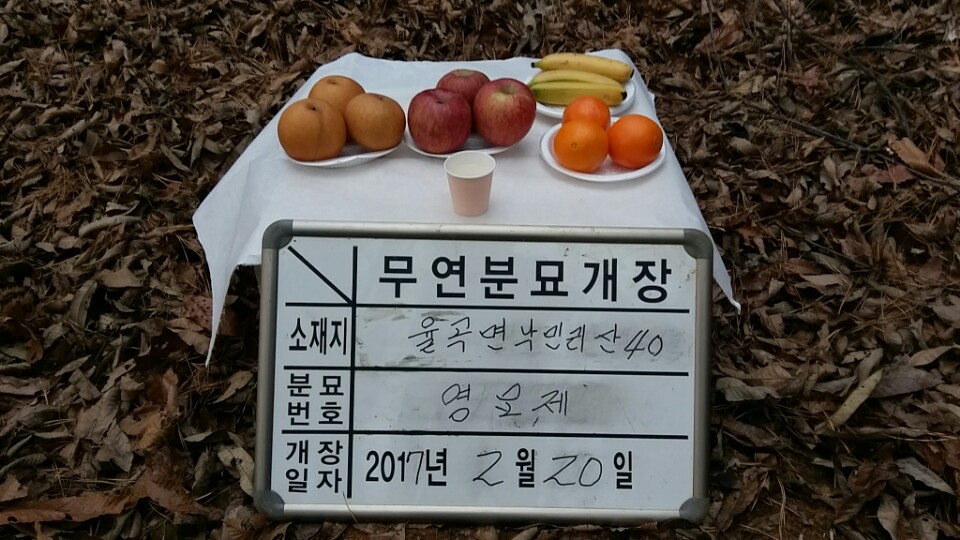 무연분묘개장
소재지 율곡면낙민리산40
분묘번호 영모제
개장일자 2017년 2월 20일